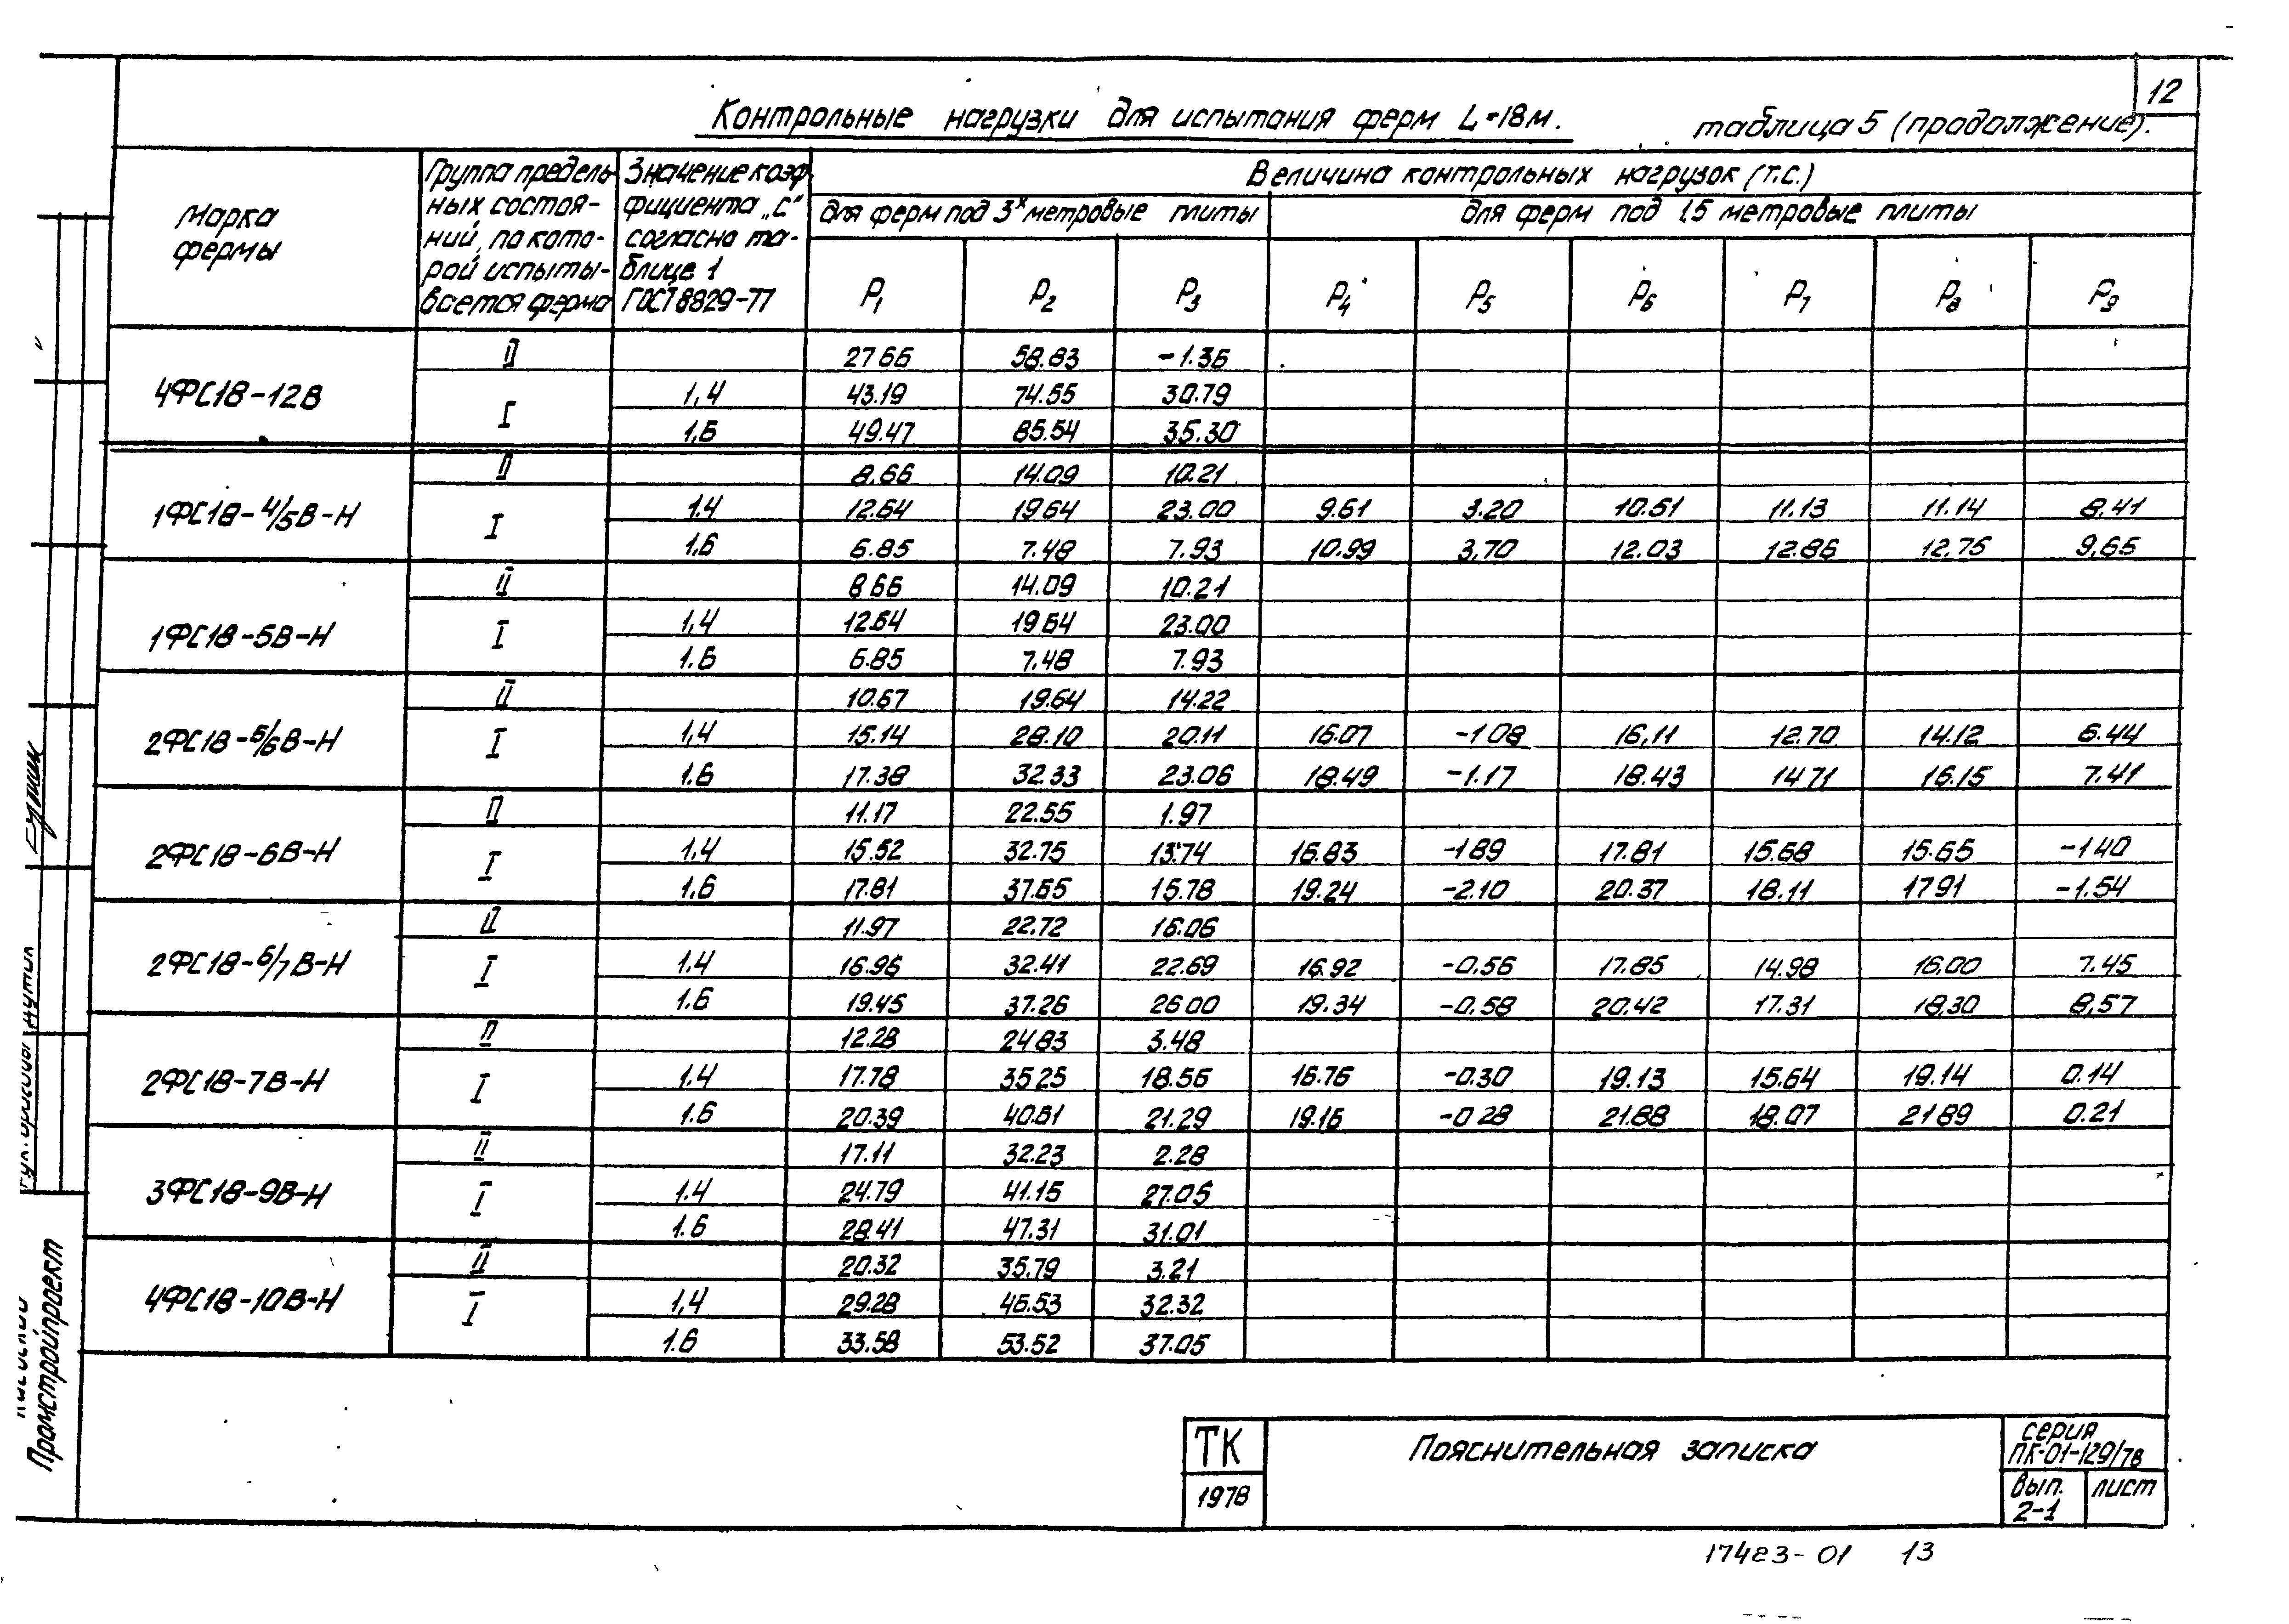 12
Контрольные нагрузки для испытания ферм L=18м.
таблица 5 (продолжение).
Марка фермы
Группа предель-
ных состоя-
ний, по кото-
рой испыты-
вается ферма
Значение коэф-
фициента „с“
согласно та-
блице 1
ГОСТ 8829-77
Величина контрольных нагрузок (т.с.)
для ферм под 3х метровые плиты
для ферм под 1,5 метровые плиты
P1 P2 P3 P4 P5 P6 P7 P8 P9
4ФС18-12В
II 27.66 58.83 -1.36
I 1,4 43.19 74.55 30.79
1,6 49.47 85.54 35.30
1ФС18-4/5В-Н
II 8.66 14.09 10.21
I 1.4 12.64 19.64 23.00 9.61 3.20 10.51 11.13 11.14 8.41
1.6 6.85 7.48 7.93 10.99 3.70 12.03 12.86 12.75 9.65
1ФС18-5В-Н
II 8.66 14.09 10.21
I 1,4 12.64 19.64 23.00
1.6 6.85 7.48 7.93
2ФС18-5/6В-Н
II 10.67 19.64 14.22
I 1,4 15.14 28.10 20.11 16.07 -1.08 16.11 12.70 14.12 6.44
1.6 17.38 32.33 23.06 18.49 -1.17 18.43 14.71 16.15 7.41
2ФС18-6В-Н
II 11.17 22.55 1.97
I 1,4 15.52 32.75 13.74 16.83 -1.89 17.81 15.68 15.65 -1.40
1.6 17.81 37.65 15.78 19.24 -2.10 20.37 18.11 17.91 -1.54
2ФС18-6/7В-Н
II 11.97 22.72 16.06
I 1.4 16.96 32.41 22.69 16.92 -0.56 17.85 14.98 16.00 7.45
1.6 19.45 37.26 26.00 19.34 -0.58 20.42 17.31 18.30 8.57
2ФС18-7В-Н
II 12.28 24.83 3.48
I 1.4 17.78 35.25 18.56 16.76 -0.30 19.13 15.64 19.14 0.14
1.6 20.39 40.51 21.29 19.16 -0.28 21.88 18.07 21.89 0.21
3ФС18-9В-Н
II 17.11 32.23 2.28
I 1.4 24.79 41.15 27.05
1.6 28.41 47.31 31.01
4ФС18-10В-Н
II 20.32 35.79 3.21
I 1,4 29.28 46.53 32.32
1.6 33.58 53.52 37.05
Промстройпроект
ТК
1978
Пояснительная записка
серия
ПК-01-129/78
вып.
2-1
лист
17423-01 13